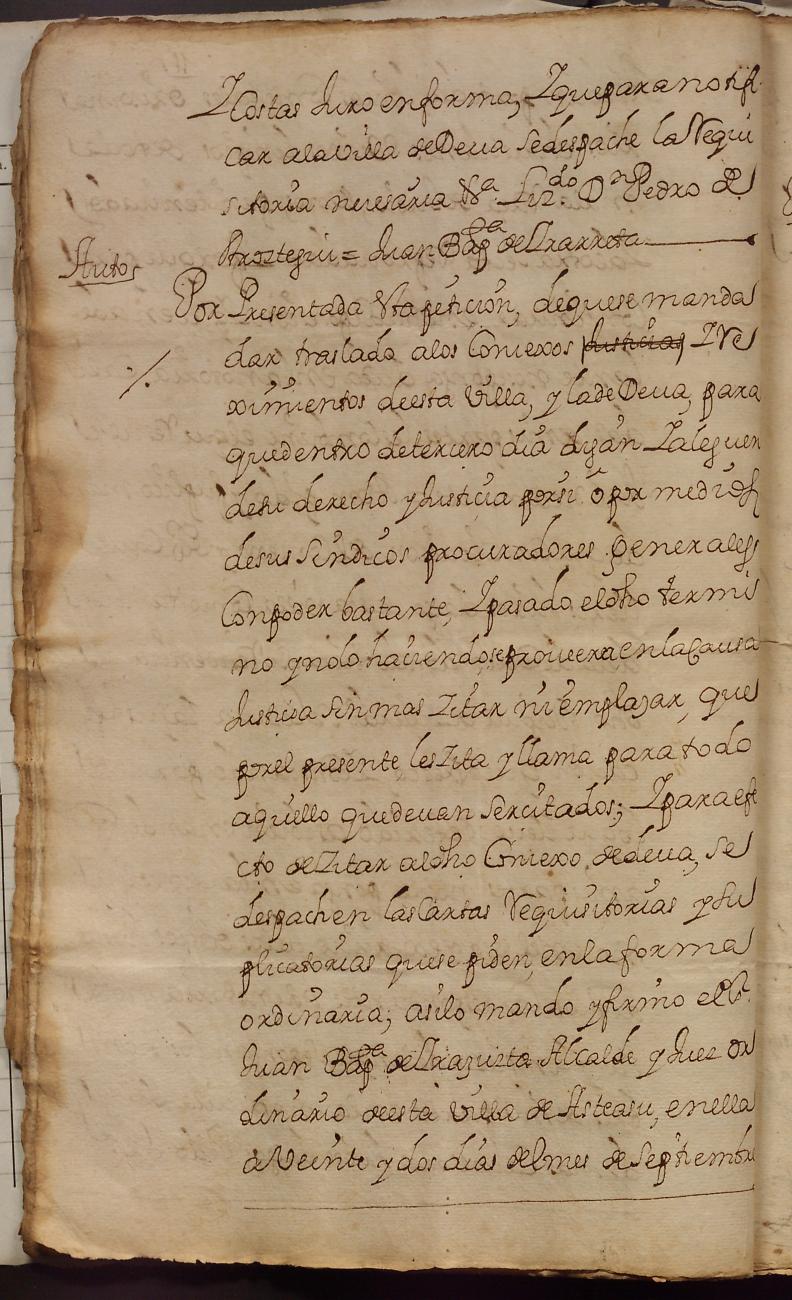 Y Costas Juro en forma, Y que para notifi
car ala Villa de Deua se despache la Requi
sitoria nesesaria Vª Lizdo. Dn Pedro de
Aroztegui = Juan Bapta de Yrarreta
Autos
Por Presentada Vta petiçion, de que se manda
dar traslado a los Conzexos Justicias Y Re
ximientos de esta Villa, y la de Deua, para
que dentro de terçero dia digan Y aleguen
de su derecho y Justiçia por si o por medio
de sus Sindicos procuradores generales
Con poder bastante, Y pasado el dho termi
no y no lo haciendo, se proueera en la Causa
Justiçia Sin mas Zitar ni emplazar, que
por el presente, les Zita y llama para todo
aquello que deuan Ser citados; Y para efe
cto de Zitar al dho Conzexo de deua, se
despachen las Cartas Requisitorias y Su
plicatorias que se piden, en la forma
ordinaria; asi lo mando y firmo el Sr.
Juan Bapta de Yrazuzta Alcalde y Juez or
dinario de esta Villa de Asteasu, en ella
a Veinte y dos dias del mes de Septiembre